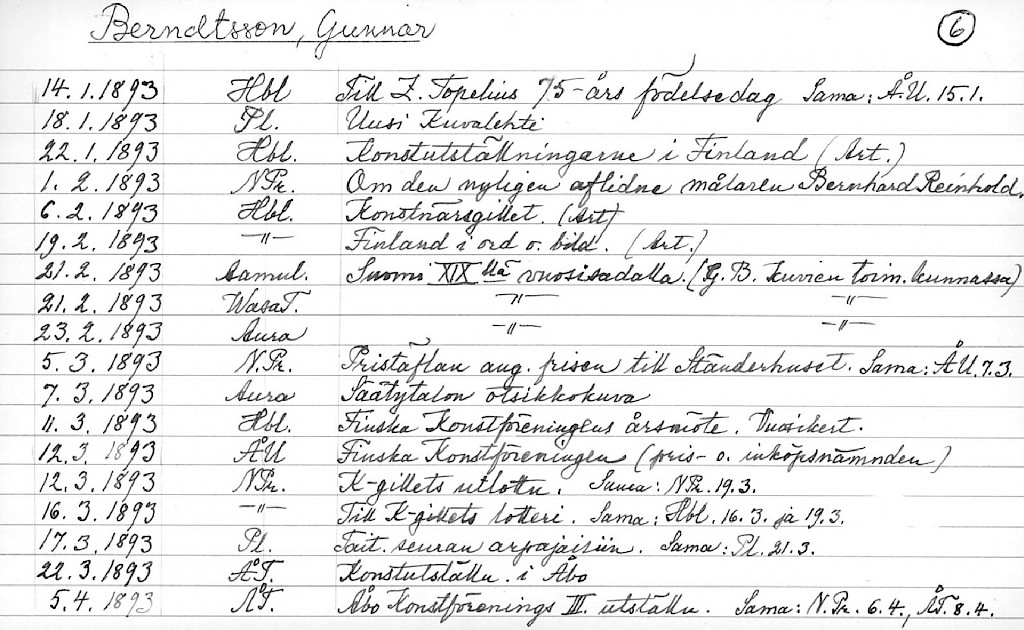 Berndtsson, Gunnar 6
14.1.1893 Hbl Till Z. Topelius 75-års födelsedag Sama: Å.U. 15.1.
18.1.1893 Pl. Uusi Kuvalehti
22.1.1893 Hbl. Konstutställningarne i Finland (Art.)
1.2.1893 N.Pr. Om den nyligen aflidne målaren Bernhard Reinhold.
6.2.1893 Hbl. Konstnärsgillet. (Art)
19.2.1893 —〃— Finland i ord o. bild. (Art.)
21.2.1893 Aamul. Suomi XIX llä vuosisadalla. (G.B. kuvien toim.kunnassa)
21.2.1893 WasaT. —〃— —〃—
23.2.1893 Aura —〃— —〃—
5.3.1893 N.Pr. Pristäflan ang. frisen till Ständerhuset. Sama: ÅU. 7.3.
7.3.1893 Aura Säätytalon otsikkokuva
11.3.1893 Hbl. Finska Konstföreningens årsmöte. Vuosikert.
12.3.1893 ÅU Finska Konstföreningen (pris- o. inköpsnämnden)
12.3.1893 N.Pr. K-gillets utlottn. Sama: N.Pr. 19.3.
16.3.1893 —〃— Till K-gillets lotteri. Sama: Hbl. 16.3. ja 19.3.
17.3.1893 Pl. Tait. seuran arpajaisiin. Sama: Pl. 21.3.
22.3.1893 ÅT. Konstutställn. i Åbo
5.4.1893 ÅT. Åbo Konstförenings III. utställn. Sama: N.Pr. 6.4., ÅT. 8.4.